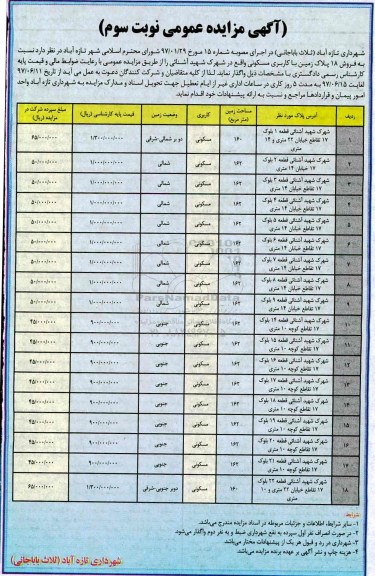 (آگهی مزایده عمومی نوبت سوم)
شهرداری تازه آباد (ثلاث باباجانی) در اجرای مصوبه شماره ۱۵ مورخ ۹۷/۰۱/۲۹ شورای محترم اسلامی شهر تازه آباد در نظر دارد نسبت
به فروش ۱۸ پلاک زمین با کاربری مسکونی واقع در شهرک شهید آشنائی را از طریق مزایده عمومی با رعایت ضوابط مالی و قیمت پایه
کارشناس رسمی دادگستری با مشخصات ذیل واگذار نماید. لذا از کلیه متقاضیان و شرکت کنندگان دعوت به عمل می آید از تاریخ ۹۷/۰۶/۱۱
لغایت ۹۷/۰۶/۱۵ به مدت ۵ روز کاری در ساعات اداری غیر از ایام تعطیل جهت تحویل اسناد و مدارک مزایده به شهرداری تازه آباد واحد
امور پیمان و قراردادها مراجع و نسبت به ارائه پیشنهادات خود اقدام نماید.
ردیف آدرس پلاک مورد نظر مساحت زمین (متر مربع) کاربری وضعیت زمین قیمت پایه کارشناسی (ریال) مبلغ سپرده شرکت در مزایده (ریال)
۱ شهرک شهید آشنائی قطعه ۱ بلوک ۱۷ تقاطع خیابان ۲۲ متری و ۱۴ متری ۱۶۰ مسکونی دو بر شمالی-شرقی ۱/۳۰۰/۰۰۰/۰۰۰ ۶۵/۰۰۰/۰۰۰
۲ شهرک شهید آشنائی قطعه ۲ بلوک ۱۷ تقاطع خیابان ۱۴ متری ۱۶۲ مسکونی شمالی ۱/۰۰۰/۰۰۰/۰۰۰ ۵۰/۰۰۰/۰۰۰
۳ شهرک شهید آشنائی قطعه ۳ بلوک ۱۷ تقاطع خیابان ۱۴ متری ۱۶۲ مسکونی شمالی ۱/۰۰۰/۰۰۰/۰۰۰ ۵۰/۰۰۰/۰۰۰
۴ شهرک شهید آشنائی قطعه ۴ بلوک ۱۷ تقاطع خیابان ۱۴ متری ۱۶۲ مسکونی شمالی ۱/۰۰۰/۰۰۰/۰۰۰ ۵۰/۰۰۰/۰۰۰
۵ شهرک شهید آشنائی قطعه ۵ بلوک ۱۷ تقاطع خیابان ۱۴ متری ۱۶۲ مسکونی شمالی ۱/۰۰۰/۰۰۰/۰۰۰ ۵۰/۰۰۰/۰۰۰
۶ شهرک شهید آشنائی قطعه ۶ بلوک ۱۷ تقاطع خیابان ۱۴ متری ۱۶۲ مسکونی شمالی ۱/۰۰۰/۰۰۰/۰۰۰ ۵۰/۰۰۰/۰۰۰
۷ شهرک شهید آشنائی قطعه ۷ بلوک ۱۷ تقاطع خیابان ۱۴ متری ۱۶۲ مسکونی شمالی ۱/۰۰۰/۰۰۰/۰۰۰ ۵۰/۰۰۰/۰۰۰
۸ شهرک شهید آشنائی قطعه ۸ بلوک ۱۷ تقاطع خیابان ۱۴ متری ۱۶۲ مسکونی شمالی ۱/۰۰۰/۰۰۰/۰۰۰ ۵۰/۰۰۰/۰۰۰
۹ شهرک شهید آشنائی قطعه ۹ بلوک ۱۷ تقاطع خیابان ۱۴ متری ۱۶۲ مسکونی شمالی ۱/۰۰۰/۰۰۰/۰۰۰ ۵۰/۰۰۰/۰۰۰
۱۰ شهرک شهید آشنائی قطعه ۱۴ بلوک ۱۷ تقاطع کوچه ۱۰ متری ۱۶۲ مسکونی جنوبی ۹۰۰/۰۰۰/۰۰۰ ۴۵/۰۰۰/۰۰۰
۱۱ شهرک شهید آشنائی قطعه ۱۵ بلوک ۱۷ تقاطع کوچه ۱۰ متری ۱۶۲ مسکونی جنوبی ۹۰۰/۰۰۰/۰۰۰ ۴۵/۰۰۰/۰۰۰
۱۲ شهرک شهید آشنائی قطعه ۱۶ بلوک ۱۷ تقاطع کوچه ۱۰ متری ۱۶۲ مسکونی جنوبی ۹۰۰/۰۰۰/۰۰۰ ۴۵/۰۰۰/۰۰۰
۱۳ شهرک شهید آشنائی قطعه ۱۷ بلوک ۱۷ تقاطع کوچه ۱۰ متری ۱۶۲ مسکونی جنوبی ۹۰۰/۰۰۰/۰۰۰ ۴۵/۰۰۰/۰۰۰
۱۴ شهرک شهید آشنائی قطعه ۱۸ بلوک ۱۷ تقاطع کوچه ۱۰ متری ۱۶۲ مسکونی جنوبی ۹۰۰/۰۰۰/۰۰۰ ۴۵/۰۰۰/۰۰۰
۱۵ شهرک شهید آشنائی قطعه ۱۹ بلوک ۱۷ تقاطع کوچه ۱۰ متری ۱۶۲ مسکونی جنوبی ۹۰۰/۰۰۰/۰۰۰ ۴۵/۰۰۰/۰۰۰
۱۶ شهرک شهید آشنائی قطعه ۲۰ بلوک ۱۷ تقاطع کوچه ۱۰ متری ۱۶۲ مسکونی جنوبی ۹۰۰/۰۰۰/۰۰۰ ۴۵/۰۰۰/۰۰۰
شهرک شهید آشنائی قطعه ۲۱ بلوک ۱۷ تقاطع کوچه ۱۰ متری ۱۶۲ مسکونی جنوبی ۹۰۰/۰۰۰/۰۰۰ ۴۵/۰۰۰/۰۰۰
۱۸ شهرک شهید آشنائی قطعه ۲۲ بلوک ۱۷ تقاطع خیابان ۲۲ متری و ۱۰ متری ۱۶۰ مسکونی دوبر جنوبی-شرقی ۱/۳۰۰/۰۰۰/۰۰۰ ۶۵/۰۰۰/۰۰۰
شرایط:
۱- سایر شرایط، اطلاعات و جزئیات مربوطه در اسناد مزایده مندرج می‌باشد.
۲- در صورت انصراف نفر اول سپرده به نفع شهرداری ضبط و به نفر دوم واگذار می‌شود.
۳- شهرداری در رد و قبول هر یک از پیشنهادات مختار می‌باشد.
۴- هزینه چاپ و نشر آگهی بر عهده برنده مزایده می‌باشد.
شهرداری تازه آباد (ثلاث باباجانی)